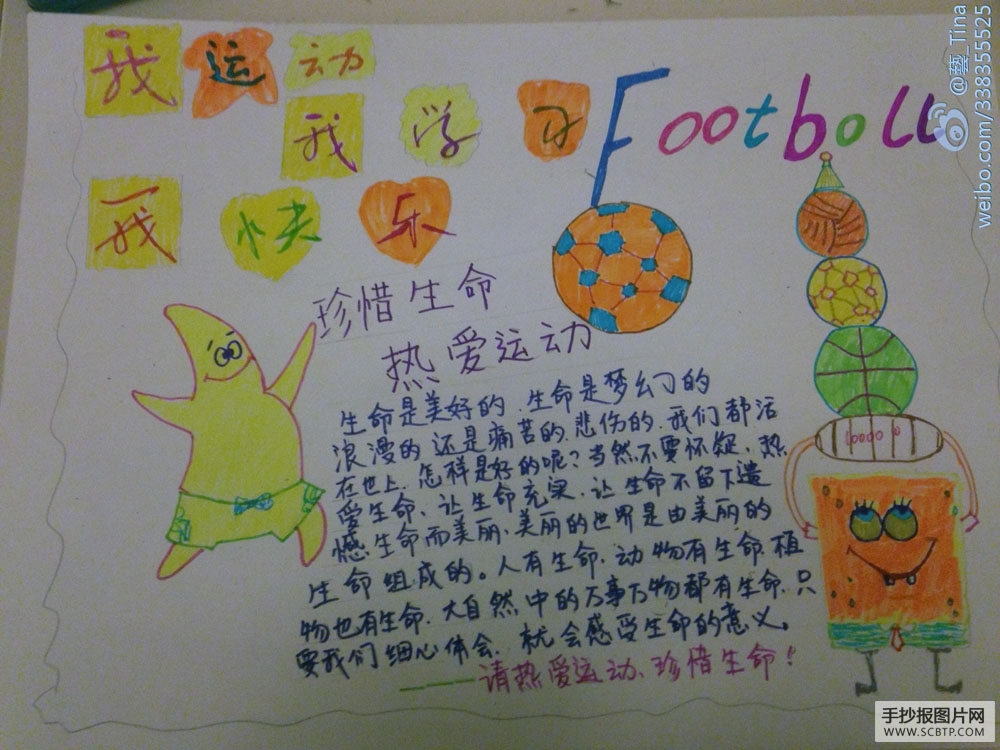 我运动
我学习
我快乐
Football
珍惜生命
热爱运动
生命是美好的、生命是梦幻的
浪漫的还是痛苦的、悲伤的、我们都活
在世上、怎样是好的呢？当然不要怀疑、热
爱生命、让生命充实、让生命不留下遗
憾、生命而美丽、美丽的世界是由美丽的
生命组成的。人有生命、动物有生命、植
物也有生命、大自然中的万事万物都有生命、只
要我们细心体会、就会感受生命的意义。
——请热爱运动、珍惜生命！
@藝_Tina
weibo.com/338355525
手抄报图片网
WWW.SCBTP.COM